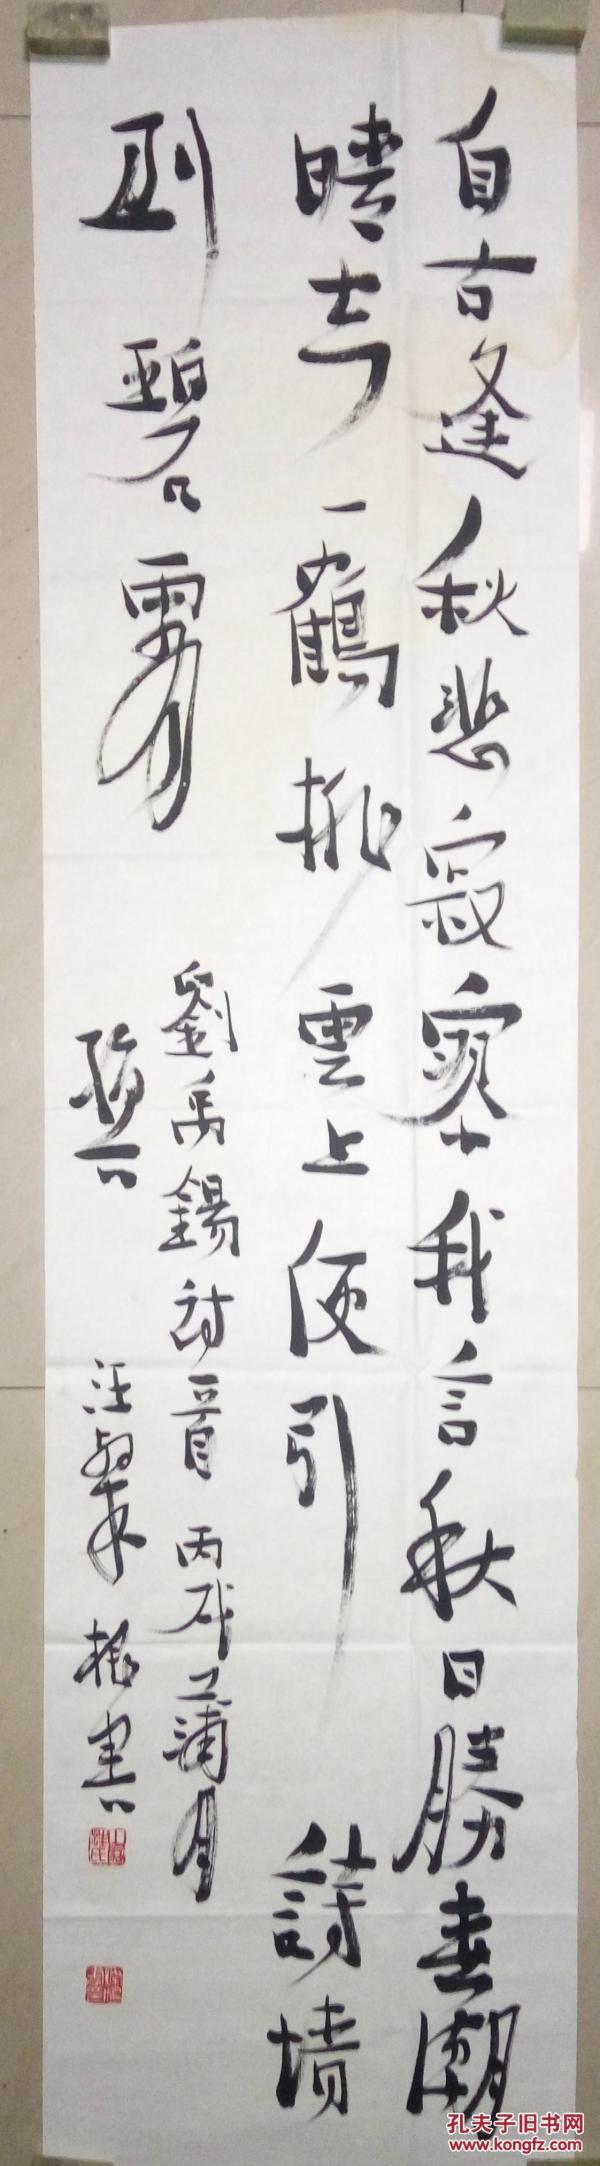 自古逢秋悲寂寥我言秋日勝春潮
晴空一鶴排雲上便引詩情
到碧霄
劉禹錫詩一首 丙戌蒲月
汪 根書
孔夫子旧书网
www.kongfz.com